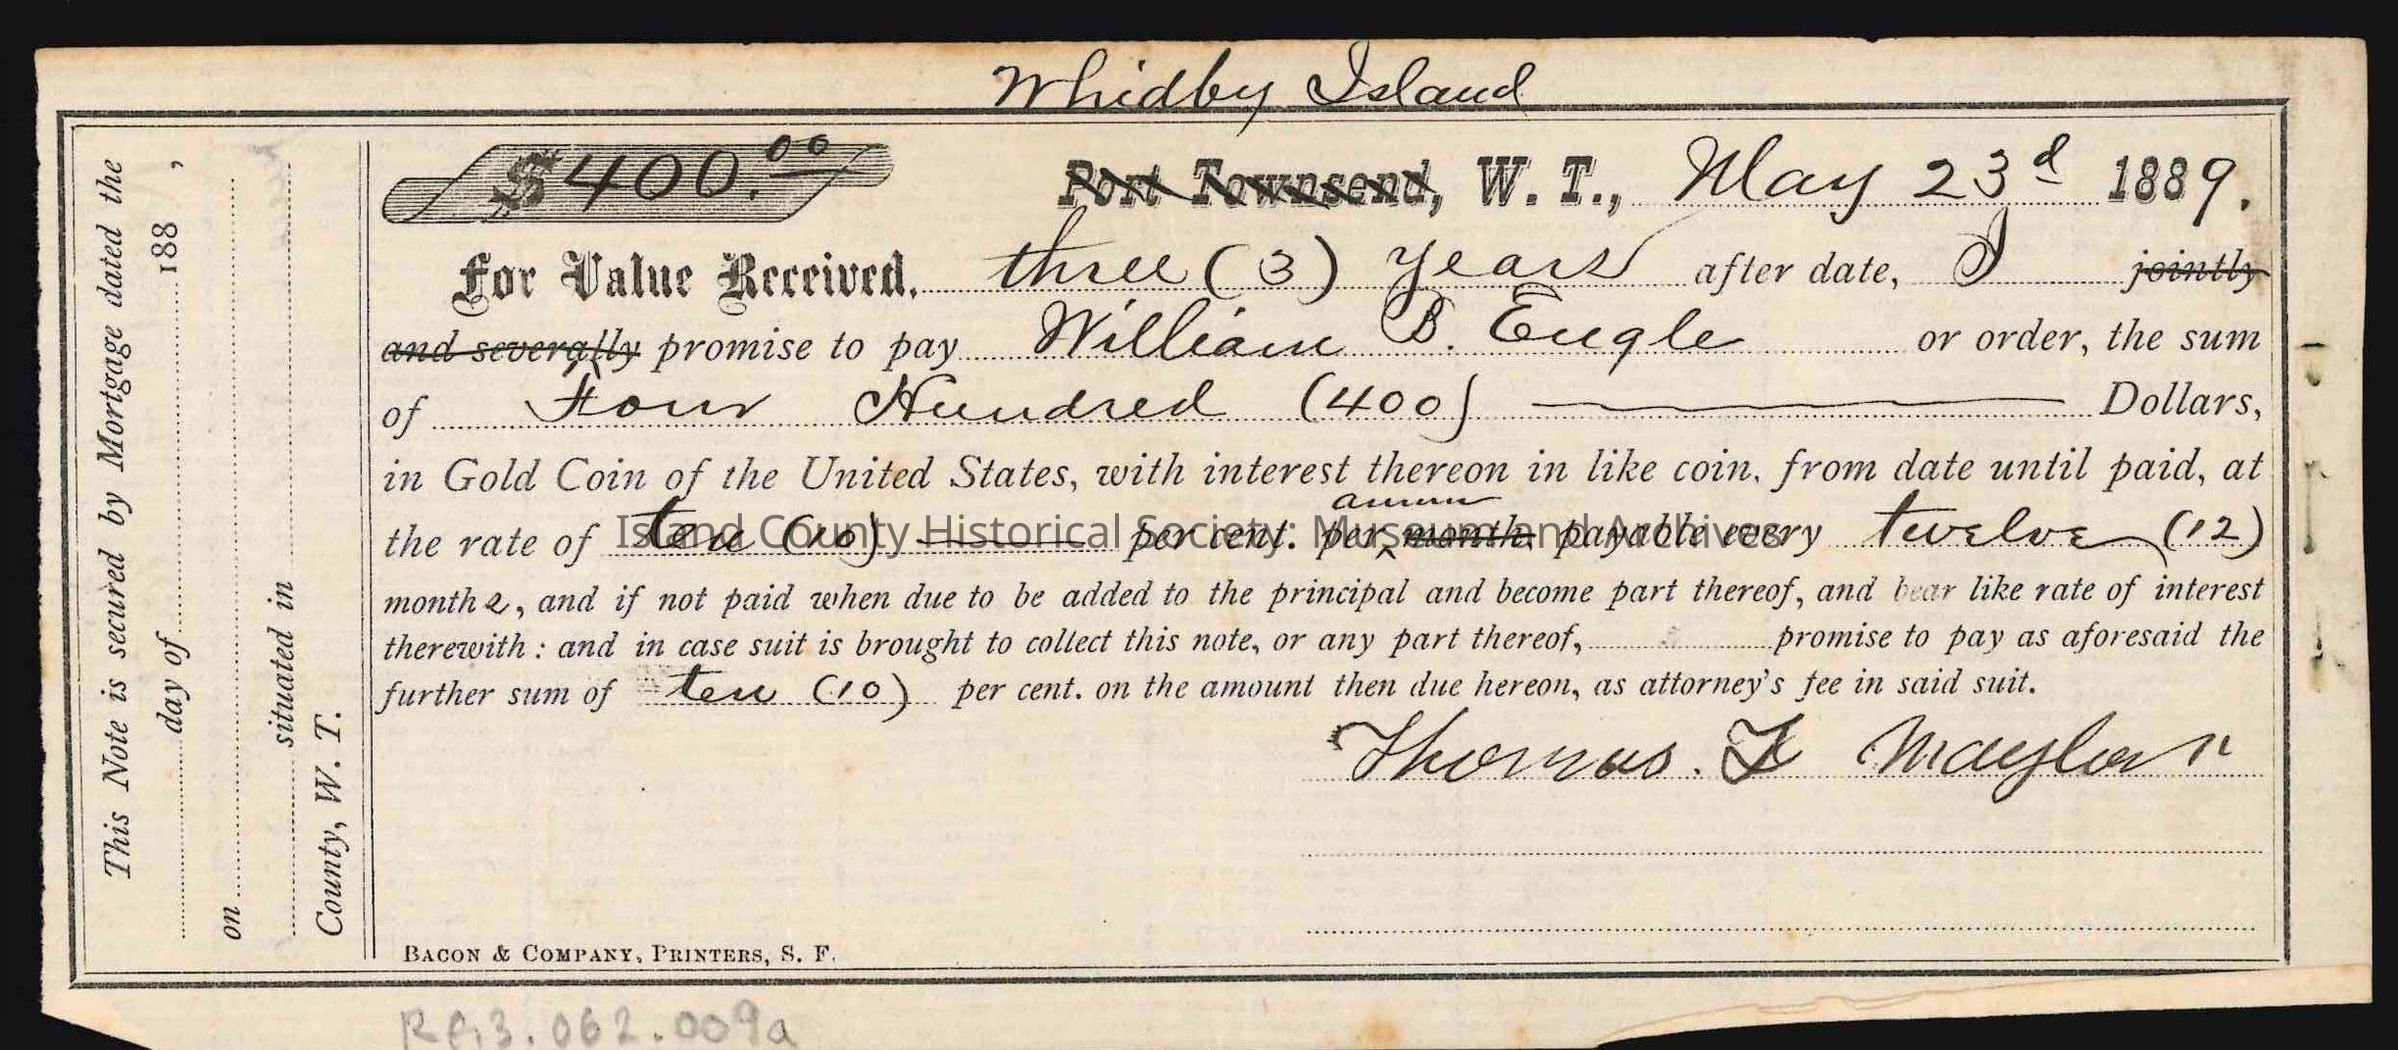 Whidby Island
$400.00
Port Townsend, W. T., May 23d 1889.
For Value Received, three (3) years after date, I jointly
and severally promise to pay William B. Engle or order, the sum
of Four Hundred (400) Dollars,
in Gold Coin of the United States, with interest thereon in like coin, from date until paid, at
annum
the rate of ten (10) per cent. per month, payable every twelve (12)
months, and if not paid when due to be added to the principal and become part thereof, and bear like rate of interest
therewith: and in case suit is brought to collect this note, or any part thereof, promise to pay as aforesaid the
further sum of ten (10) per cent. on the amount then due hereon, as attorney's fee in said suit.
Thomas. F Maylor
BACON & COMPANY, PRINTERS, S. F.
This Note is secured by Mortgage dated the
day of 188 ,
on
situated in
County, W. T.
Island County Historical Society: Museum and Archives
RG3.062.009a